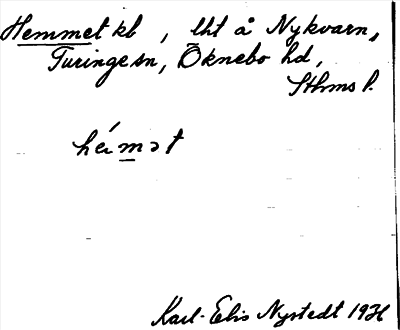 Hemmet kb , lht å Nykvarn,
Turinge sn, Öknebo hd,
Sthms l.
héi̯mət
Karl-Elis Nystedt 1931